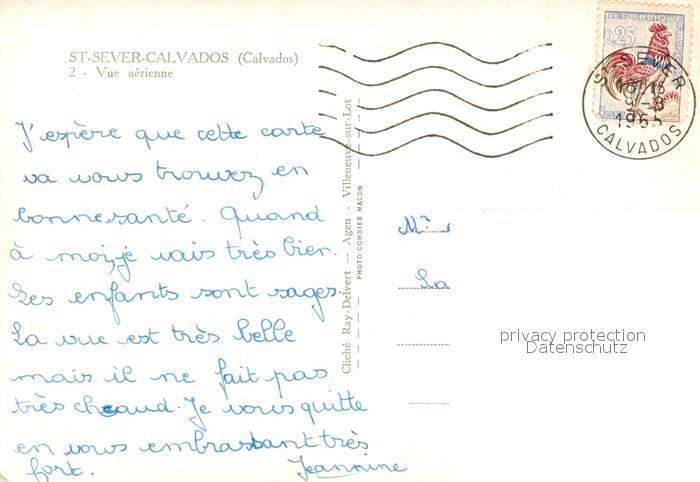 ST-SEVER-CALVADOS (Calvados)
2 - Vue aérienne
J'espère que cette carte
va vous trouvez en
bonne santé. Quand
à moi, je vais très bien.
Les enfants sont sages.
La vue est très belle
mais il ne fait pas
très chaud. Je vous quitte
en vous embrassant très
fort. Jeannine
Cliché Ray-Delvert — Agen - Villeneuve-sur-Lot
PHOTO COMBIER MACON
REPUBLIQUE FRANÇAISE
0,25
ST SEVER
9-8
1965
CALVADOS
La
privacy protection
Datenschutz